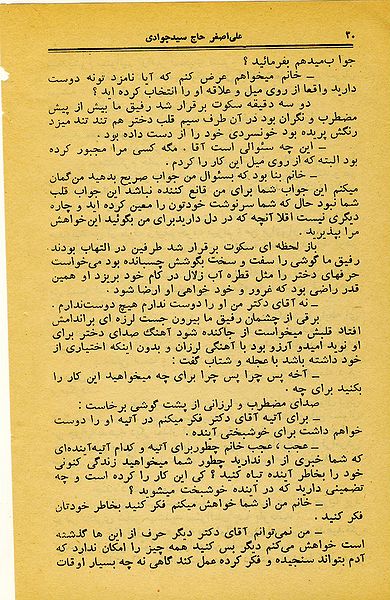 ۳۰ علی‌اصغر حاج سیدجوادی
جواب میدهم بفرمائید ؟
ــ خانم میخواهم عرض کنم که آیا نامزد تونه دوست
دارید واقعا از روی میل و علاقه او را انتخاب کرده اید ؟
دو سه دقیقه سکوت برقرار شد رفیق ما بیش از پیش
مضطرب و نگران بود در آن طرف سیم قلب دختر هم تند تند میزد
رنگش پریده بود خونسردی خود را از دست داده بود .
ــ این چه سئوالی است آقا ، مگه کسی مرا مجبور کرده
بود البته که از روی میل این کار را کردم .
ــ خانم بنا بود که بسئوال من جواب صریح بدهید من‌گمان
میکنم این جواب شما برای من قانع کننده نباشد این جواب قلب
شما نبود حال که شما سرنوشت خودتون را معین کرده اید و چاره
دیگری نیست اقلا آنچه که در دل دارید برای من بگوئید این‌خواهش
مرا بپذیرید .
باز لحظه ای سکوت برقرار شد طرفین در التهاب بودند
رفیق ما گوشی را سفت و سخت بگوشش چسبانده بود میخواست
حرفهای دختر را مثل قطره آب زلال در کام خود بریزد او همین
قدر راضی بود که غرور و خود خواهی او ارضا شود .
ــ نه آقای دکتر من او را دوست ندارم هیچ دوست‌ندارم .
برقی از چشمان رفیق ما بیرون جست لرزه ای براندامش
افتاد قلبش میخواست از جاکنده شود آهنگ صدای دختر برای
او نوید امید و آرزو بود با آهنگی لرزان و بدون اینکه اختیاری از
خود داشته باشد با عجله و شتاب گفت :
ــ آخه پس چرا پس چرا برای چه میخواهید این کار را
بکنید برای چه .
صدای مضطرب و لرزانی از پشت گوشی برخاست :
ــ برای آتیه آقای دکتر فکر میکنم در آتیه او را دوست
خواهم داشت برای خوشبختی آینده .
ــ عجب ، عجب خانم چطور برای آتیه و کدام آتیه آینده‌ای
که شما خبری از او ندارید چطور شما میخواهید زندگی کنونی
خود را بخاطر آینده تباه کنید ؟ کی این کار را کرده است و چه
تضمینی دارید که در آینده خوشبخت میشوید ؟
ــ خانم من از شما خواهش میکنم فکر کنید بخاطر خودتان
فکر کنید .
ــ من نمی‌توانم آقای دکتر دیگر حرف از این ها گذشته
است خواهش می‌کنم دیگر بس کنید همه چیز را امکان ندارد که
آدم بتواند سنجیده و فکر کرده عمل کند گاهی نه چه بسیار اوقات